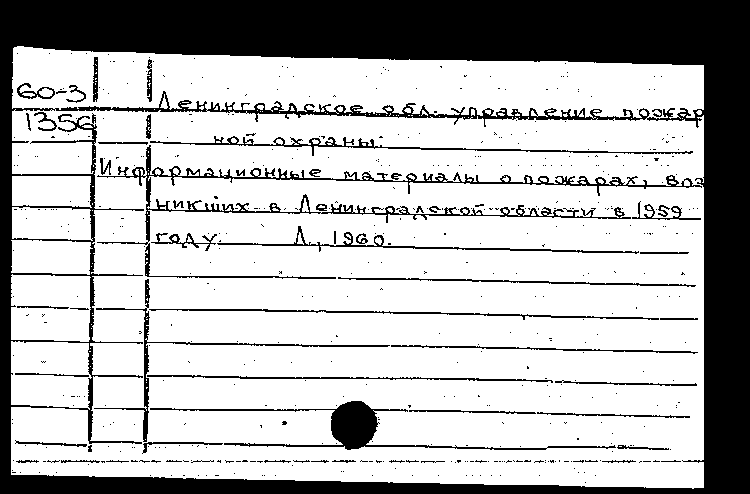 60-3
1356
Ленинградское обл. управление пожар
ной охраны.
Информационные материалы о пожарах, воз
никших в Ленинградской области в 1959
году. Л., 1960.